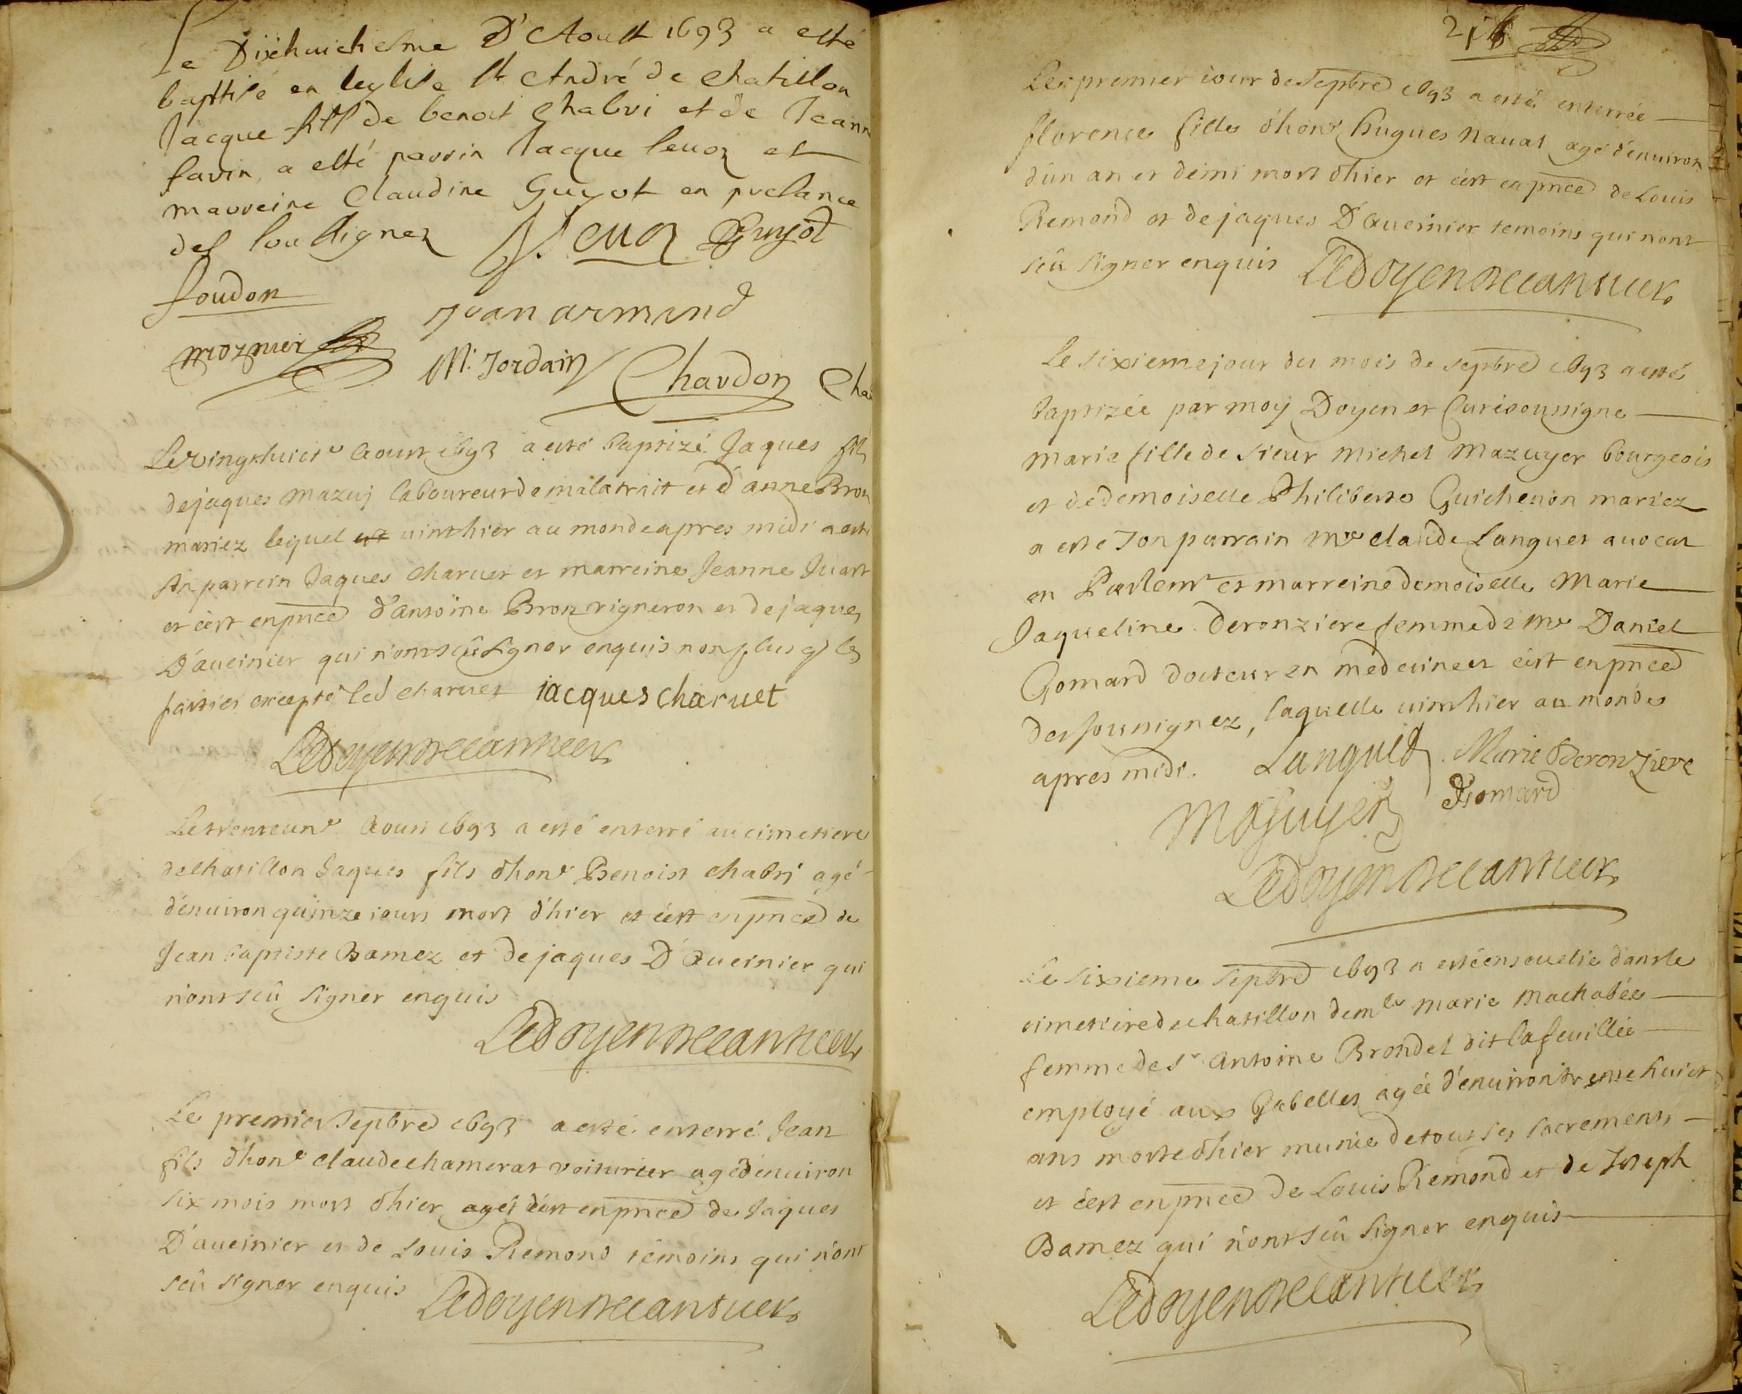 Le Dixhuictiesme D'Aoust 1693 a esté
baptisé en leglise St André de Chatillon
Jacque fils de benoit Chabri et de Jeanne
favin, a esté parrin Jacque leuoz et
marreine Claudine Guyot en presance
des soussignez J Leuoz Guyot
foudon
Jean armand
moznier
M. Jordain Chaudon Cha
Le vingthuict.e Aoust 1693 a esté baptizé Jaques fils
de jaques mazuy laboureur de malatrait et d'anne Bron
mariez lequel est vint hier au monde apres midi a esté
son parrein Jaques Charuet et marreine Jeanne Juart
et c'est en pnce d'antoine Bron vigneron et de jaques
D'aueinier qui n'ont seû signer enquis non plus q les
parties excepté led Charuet iacques charuet
Ledoyen
Le trenteun.e Aoust 1693 a esté enterré au cimetiere
de chatillon Jaques fils d'hon.e Benoist chabri agé
d'enuiron quinze iours mort d'hier et c'est en pnce de
Jean baptiste Bamez et de jaques D'Aueinier qui
n'ont seû signer enquis
Ledoyen
Le premier Septbre 1693 a esté enterré Jean
fils d'hon.e claude chamerat voiturier agé d'enuiron
six mois mort d'hier agé c'est en pnce de Jaques
D'aueinier et de Louis Remond témoins qui n'ont
seû signer enquis Ledoyen
Le premier iour de Septbre 1693 a esté enterrée
florence fille d'hon.e Hugues Nauat agé d'enuiron
d'un an et demi mort d'hier et c'est en pnce de Louis
Remond et de jaques D'aueinier temoins qui n'ont
seû signer enquis Ledoyen
Le sixieme jour du mois de septbre 1693 a esté
baptizée par moy Doyen et Curé soussigné
marie fille de sieur michel Mazuyer bourgeois
et de demoiselle Philiberte Guichenon mariez
a esté son parrain Mre claude Languet auocat
en Parlem.t et marreine demoiselle Marie
Jaqueline deronziere femme de Mr Daniel
Gomard docteur en medecine et c'est en pnce
des soussignez, laquelle vint hier au monde
apres midi. Languet Marie Deronziere
Masuyer Gomard
Ledoyen
Le sixieme septbre 1693 a esté enseuelie dans le
cimetiere de chatillon dem.le marie Machabée
femme de Sr Antoine Brondel dit lafeuillée
employé aux Gabelles agée d'enuiron trente huict
ans morte d'hier munie de tous ses sacrements
et c'est en pnce de Louis Remond et de Joseph
Bamez qui n'ont seû signer enquis
Ledoyen